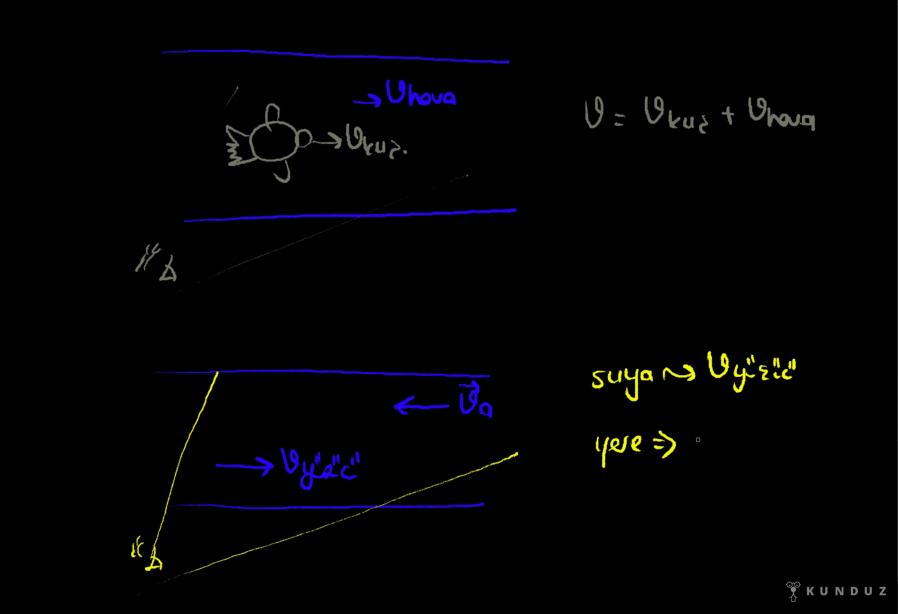 → ϑhava
→ ϑkuş.
ϑ = ϑkuş + ϑhava
← ϑ⃗a
→ ϑyüzücü
suya → ϑyüzücü
yere ⇒
KUNDUZ